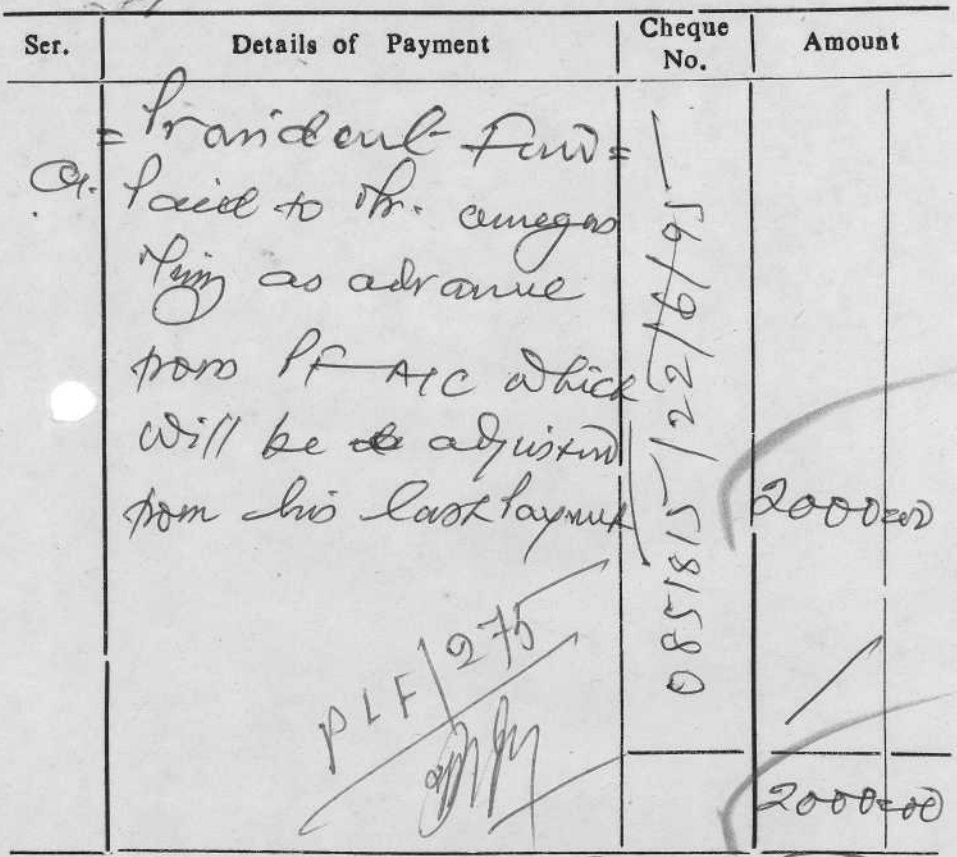 Ser. Details of Payment Cheque No. Amount
= Provident Fund =
01. Paid to Mr.
as advance
from PF A/C which
will be adjusted
from his last Payment 2000=00
085815 / 22/6/95
PLF/275
2000=00